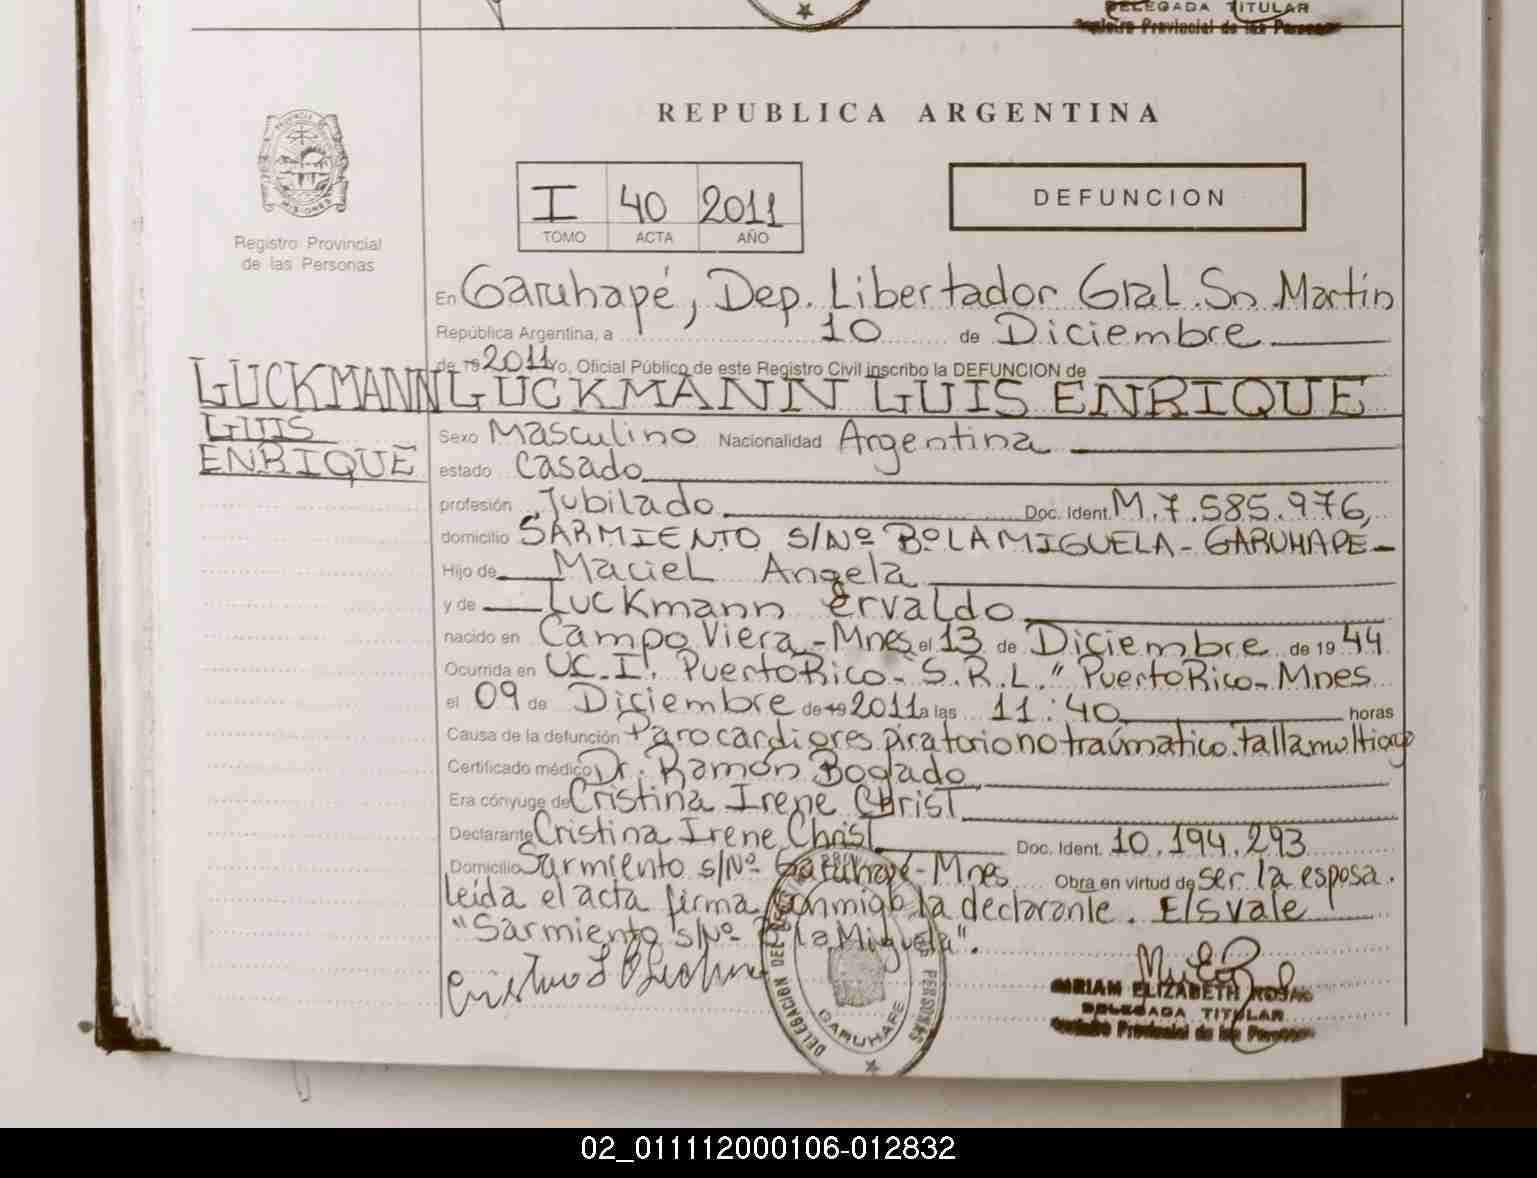 DELEGADA TITULAR
Registro Provincial de las Personas
REPUBLICA ARGENTINA
PROVINCIA DE MISIONES
Registro Provincial
de las Personas
I 40 2011
TOMO ACTA AÑO
DEFUNCION
En Garuhapé, Dep. Libertador Gral. Sn. Martin
República Argentina, a 10 de Diciembre
de 19 2011 Yo, Oficial Público de este Registro Civil inscribo la DEFUNCION de
LUCKMANN LUIS ENRIQUE
LUCKMANN
LUIS
ENRIQUE
Sexo Masculino Nacionalidad Argentina
estado Casado
profesión Jubilado Doc. Ident. M.7.585.976,
domicilio SARMIENTO S/Nº Bº LA MIGUELA - GARUHAPE -
Hijo de Maciel Angela
y de Luckmann Ervaldo
nacido en Campo Viera - Mnes el 13 de Diciembre de 19 44
Ocurrida en U.C.I. Puerto Rico - S.R.L." Puerto Rico - Mnes
el 09 de Diciembre de 19 2011 a las 11:40 horas
Causa de la defunción Paro cardiorespiratorio no traumatico.
Certificado médico Dr. Ramón Bogado
Era cónyuge de Cristina Irene Christ
Declarante Cristina Irene Christ Doc. Ident. 10.194.293
Domicilio Sarmiento s/Nº Garuhapé - Mnes Obra en virtud de ser la esposa.
leída el acta firma conmigo la declarante. E/S vale
"Sarmiento s/Nº Bº la Miguela".
DELEGACION DEL PERSONAS
GARUHAPE
MIRIAM ELIZABETH ROJAS
DELEGADA TITULAR
Registro Provincial de las Personas
02_011112000106-012832